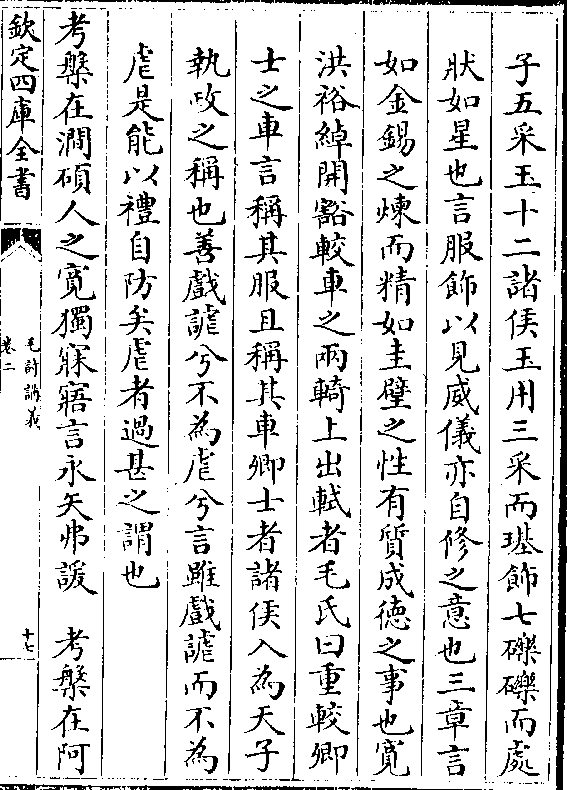 子五采玉十二諸侯玉用三采而璂飾七礫礫而處
狀如星也言服飾以見威儀亦自修之意也三章言
如金錫之煉而精如圭璧之性有質成德之事也寛
洪裕綽開豁較車之兩輢上出軾者毛氏曰重較卿
士之車言稱其服且稱其車卿士者諸侯入為天子
執政之稱也善戲謔兮不為虐兮言雖戲謔而不為
虐是能以禮自防矣虐者過甚之謂也
考槃在澗碩人之寛獨寐寤言永矢弗諼　考槃在阿
欽定四庫全書
毛詩講義
卷二
十七